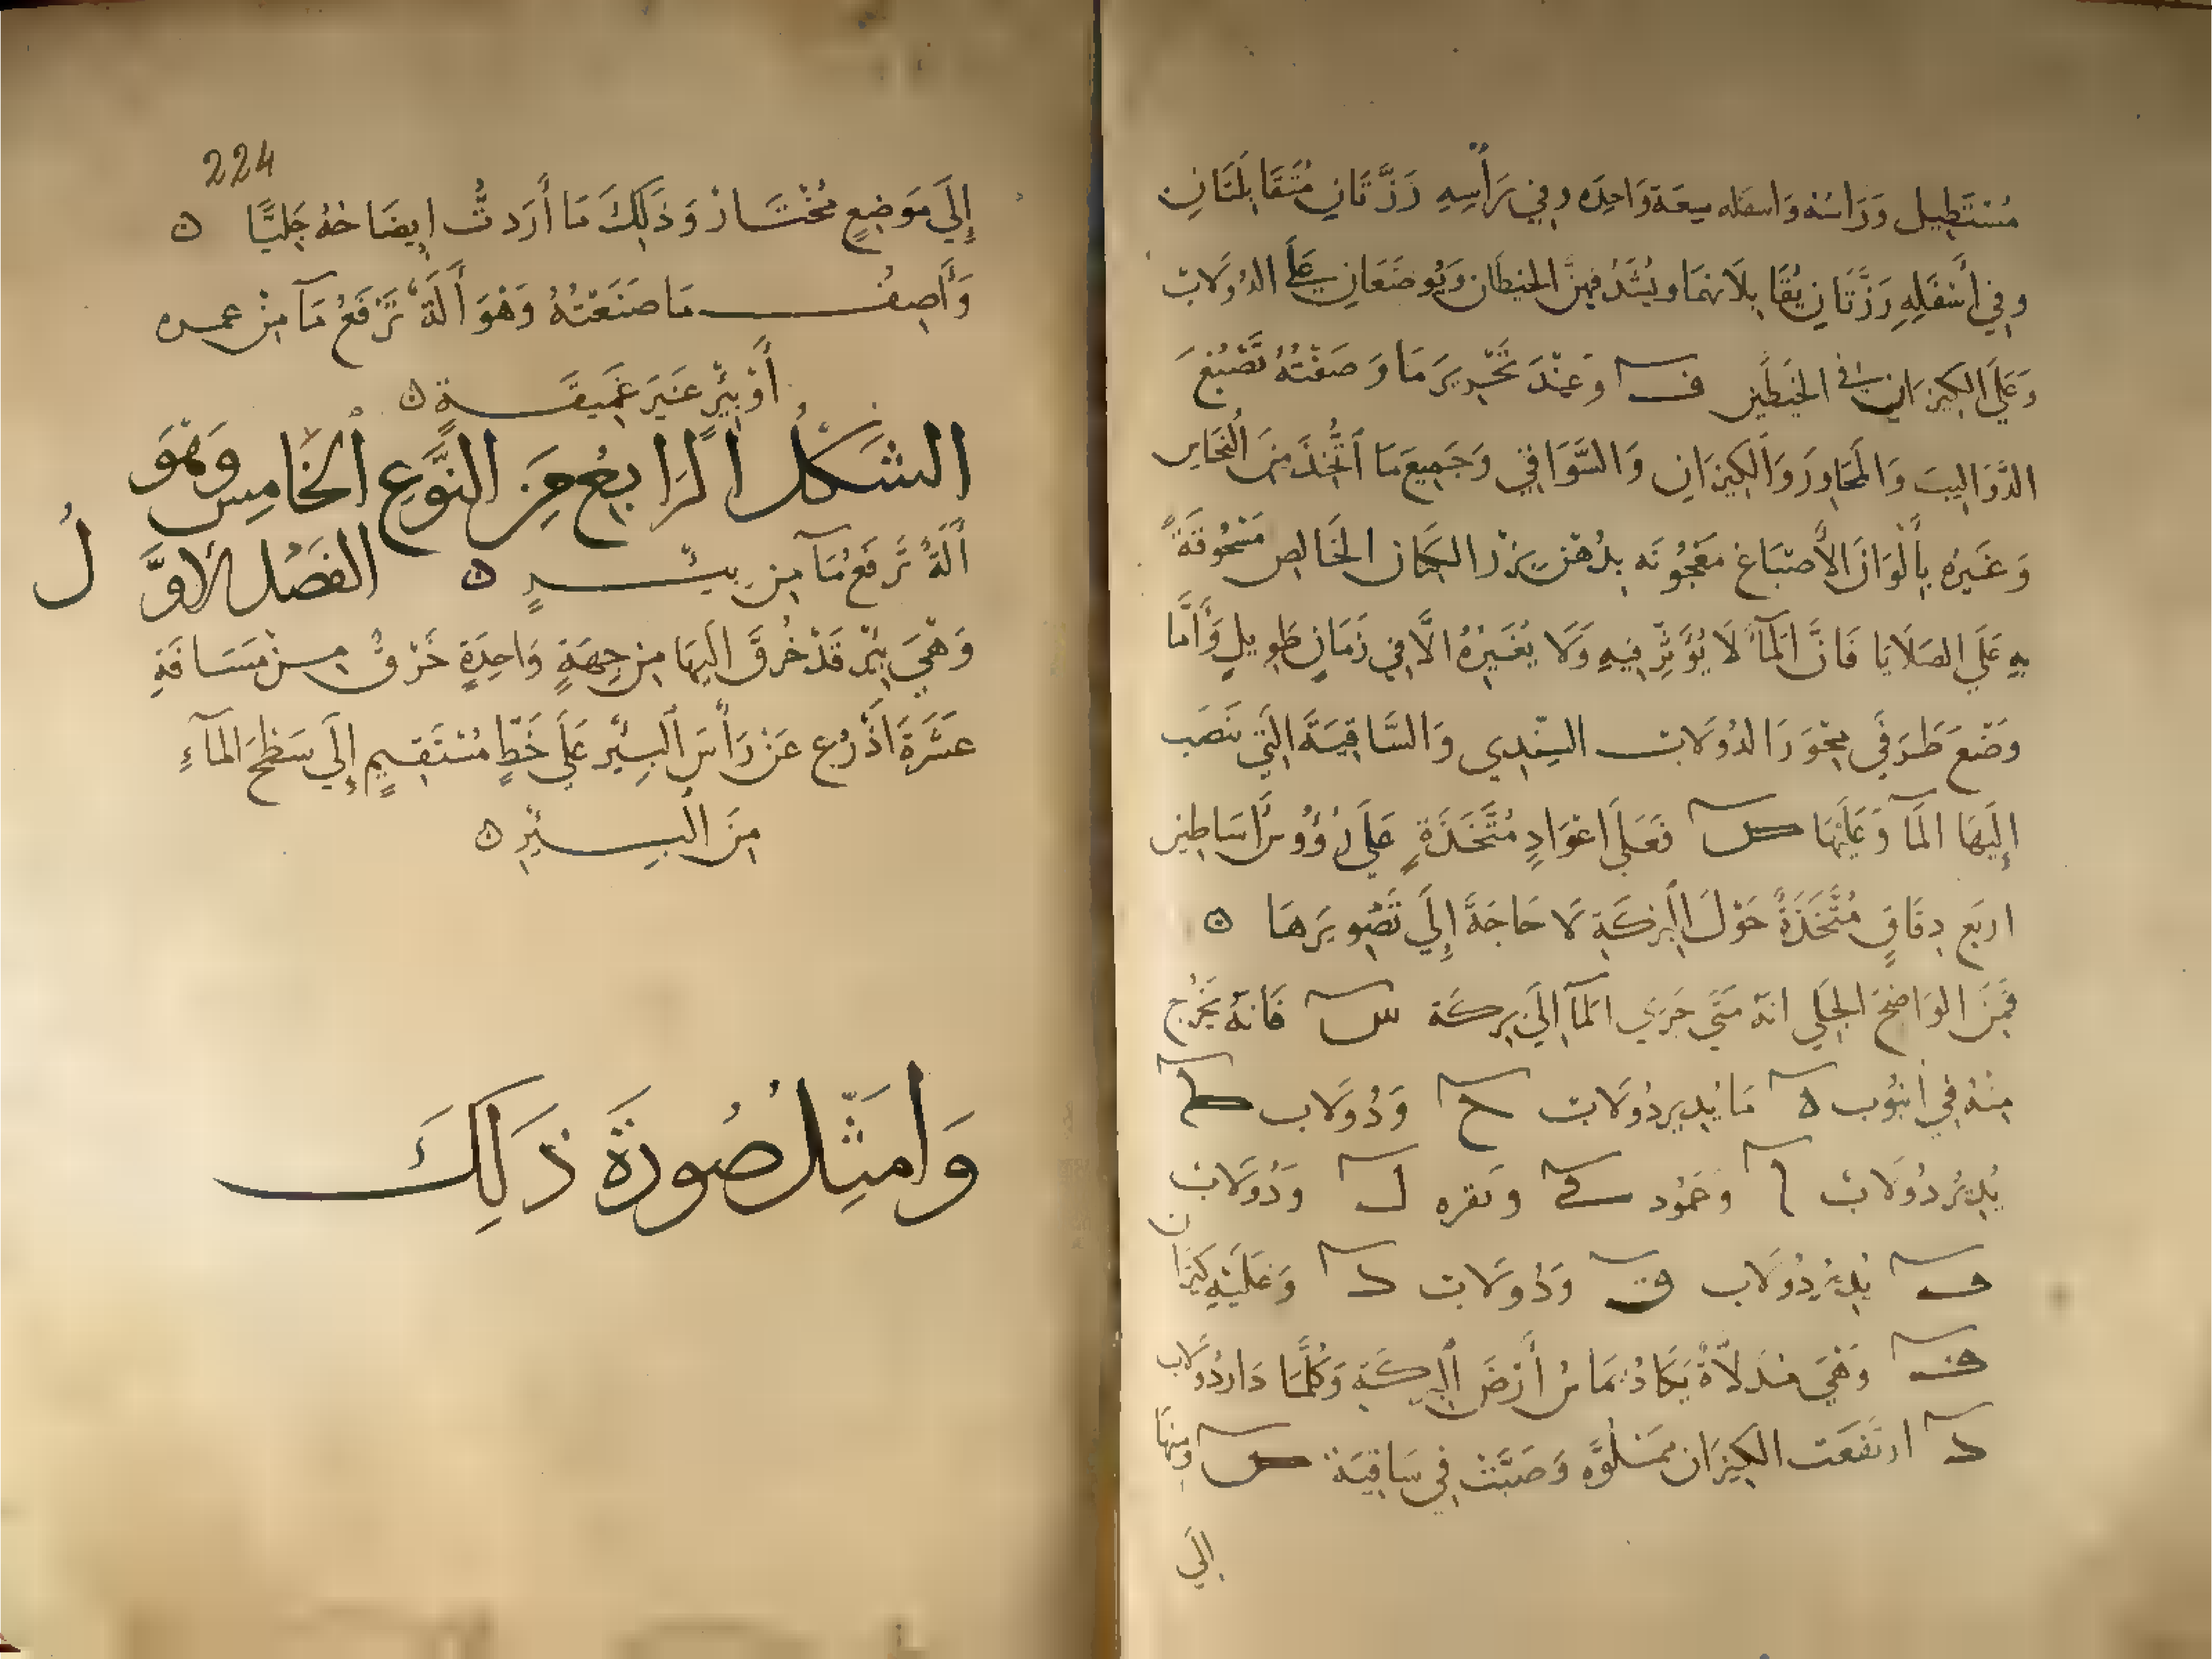 مُسْتَطِيل وَرَاسُهُ وَاسفله سِعَة وَاحِدَه وفِي رَأْسِهِ رَزَّتَانِ مُتَقَابِلَتَانِ
وفِي أَسْفَلِهِ رَزَّتَانِ يُقَابِلَانهمَا ويُشَدُّ فِيهنَّ الخيطَان وَيُوضَعَانِ عَلَى الدُولَاب
وَعَلَى الكِيزَانِ في الخَيطَين ف وَعِنْدَ تَحْرِيرِ مَا وَصَفْتُهُ تُصْبَغ
الدَّوَالِيبَ وَالمَحَاوِرَ وَالكِيزَانِ وَالسَّوَاقِي وَجَمِيعَ مَا اتُّخِذَ مِنَ النُحَاسِ
وَغَيرِهِ بِأَلْوَانِ الأَصْبَاغ مَعْجُونَه بِدُهْنِ بَزْر الكتَان الخَالِص مَسْحُوقَةً
بِهِ عَلَى الصَلَايَا فَانَّ المَآءَ لَا يُؤَثِّر فِيهِ وَلَا يُغَيِّرُهُ الَّا فِي زَمَانٍ طَوِيلٍ وَأَمَّا
وَضْعَ طَرَفَي مِحْوَر الدُولَاب السِنْدِي وَالسَّاقِيَةَ التِي تنَصَب
إِلَيهَا المَآ وَعَلَيْهَا ص فَعَلَى اعْوَادٍ مُتَّخَذَةٍ عَلَى رُؤُوس أسَاطِين
اربَع دِقَاقٍ مُتَّخَذَةً حَوْلَ البِركَةِ لَا حَاجَةَ إِلَى تَصْوِيرَهَا ه
فَمِنَ الوَاضِحَ الجَلِي انهُ مَتَى جَرَى المَآ إِلَى بِركَة س فَانهُ يَخْرُج
مِنْهُ فِي أنبُوب ه مَا يُدِير دُولَاب ح وَدُولَاب ط
يُدِيرُ دُولَاب ا وَعَمُود ك وبَقره ل وَدُولَاب
ف يُدِيرُ دُولَاب ق وَدُولَاب د وَعَلَيْهِ كيزَان
ف وَهْيَ مُدَلَّاةٌ يَكَادُ يمَاسُ أَرْضَ البِركَةِ وَكُلَّمَا دَارَ دُولَاب
د ارتَفَعَت الكِيزَان مَمْلُوَّه وَصَبَّتْ فِي سَاقِيَة ص ومِنهَا
الَي
224
إِلَى مَوضِعٍ مُخْتَار وَذَلِكَ مَا أَرَدتُّ ايضَاحَهُ جَلِيًّا ه
وَأَصِفُ مَا صَنَعْتُهُ وَهْوَ أَلَةٌ تَرْفَعُ مَآ مِنْ غمره
أَوْ بِيْرٍ غَيرَ عَمِيقَةٍ ه
الشَكْلُ الرَابِعُ مِنَ النَّوعِ الخَامِسِ وَهْوَ
أَلَةٌ تَرفَعُ مَآ مِن بِئْرٍ ه الفَصْل الأوَّلُ
وَهْيَ بِئْر قَدْ خُرِقَ اليهَا مِن جِهَةٍ وَاحِدَةٍ خَرْقٌ مِنْ مَسَافَةِ
عَشَرَةَ اذْرُع عَنْ رَأْسِ البِيْر عَلَى خَطٍّ مُسْتَقِيمٍ إِلَى سَطْحَ المَآءِ
مِنَ البِيْرِ ه
وَامَثِّل صُورَةَ ذَلِكَ